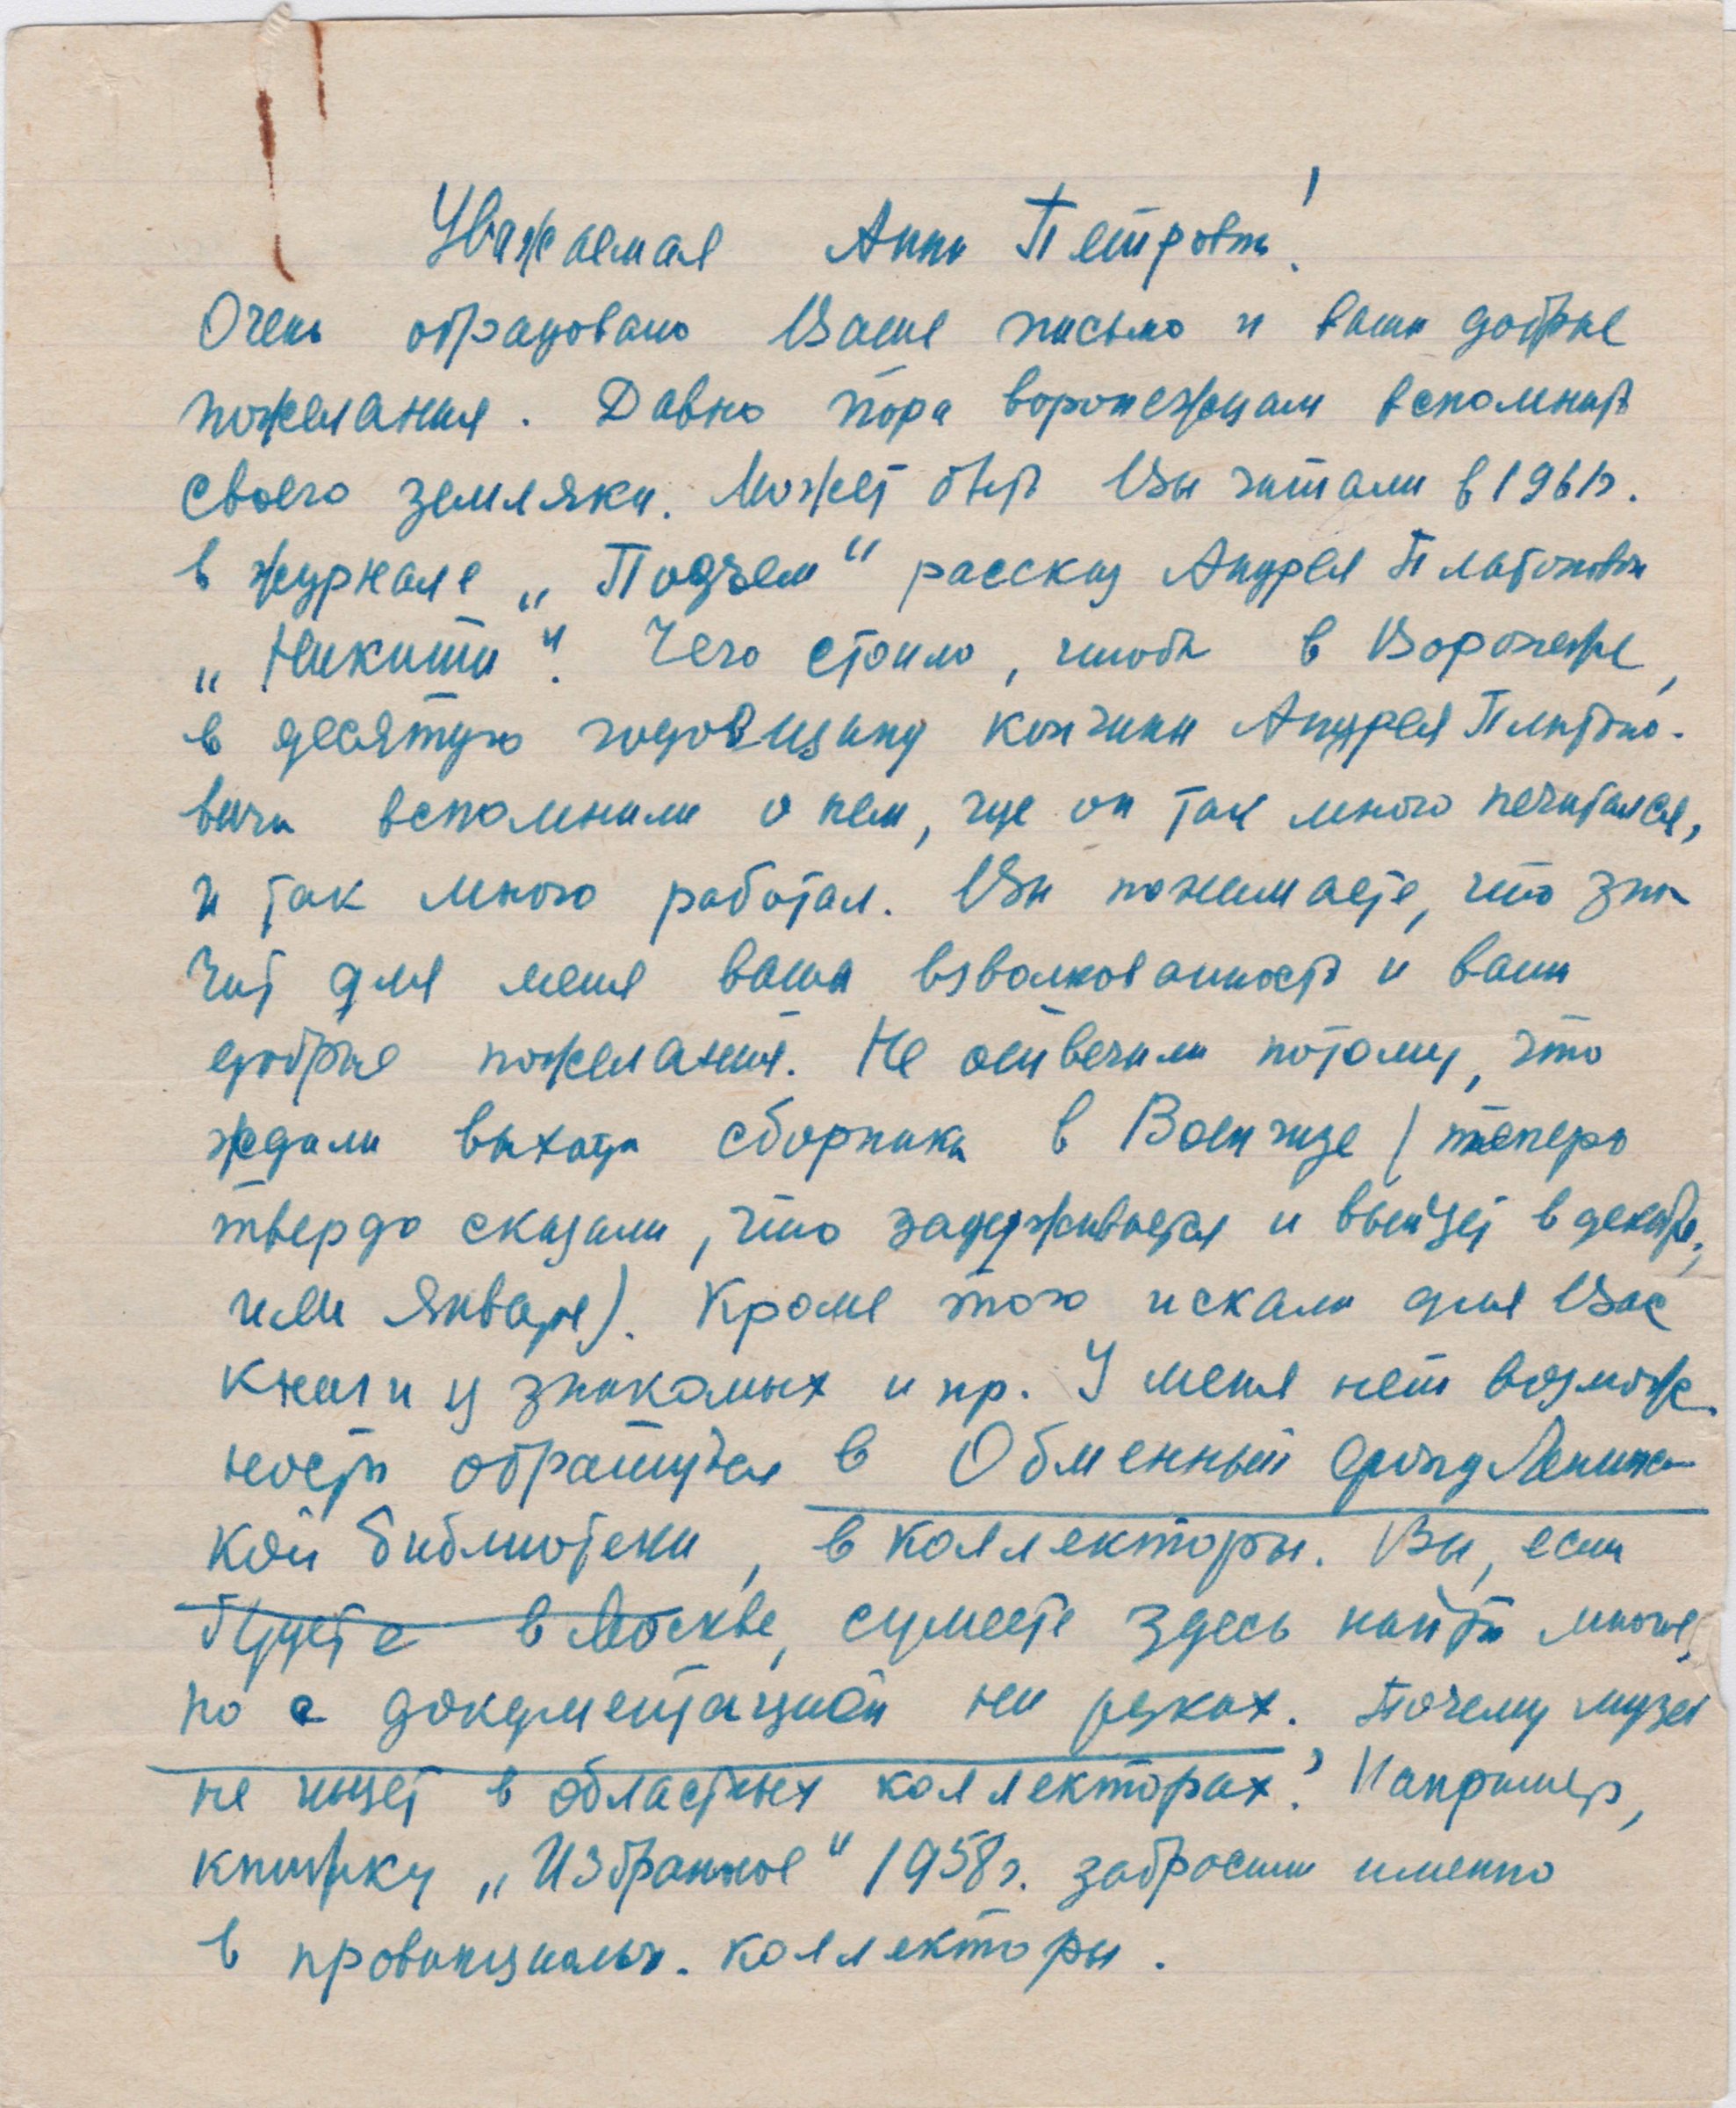 Уважаемая Анна Петровна!
Очень обрадовало Ваше письмо и ваши добрые
пожелания. Давно пора воронежцам вспомнить
своего земляка. Может быть Вы читали в 1961г.
в журнале „Подъем“ рассказ Андрея Платонова
„Никита“. Чего стоило, чтобы в Воронеже,
в десятую годовщину кончины Андрея Платоно-
вича вспомнили о нем, где он так много печатался,
и так много работал. Вы понимаете, что зна-
чит для меня ваша взволнованность и ваши
добрые пожелания. Не отвечали потому, что
ждали выхода сборника в Воен гизе (теперь
твердо сказали, что задерживается и выйдет в декабре,
или январе). Кроме того искали для Вас
книги у знакомых и пр. У меня нет возмож-
ность обратиться в Обменный фонд Ленинс-
кой библиотеки, в коллекторы. Вы, если
будете в Москве, сумеете здесь найти многое,
но с документацией на руках. Почему музей
не ищет в областных коллекторах? Например,
книжку „Избранное“ 1958г. забросили именно
в провинциальн. коллекторы.